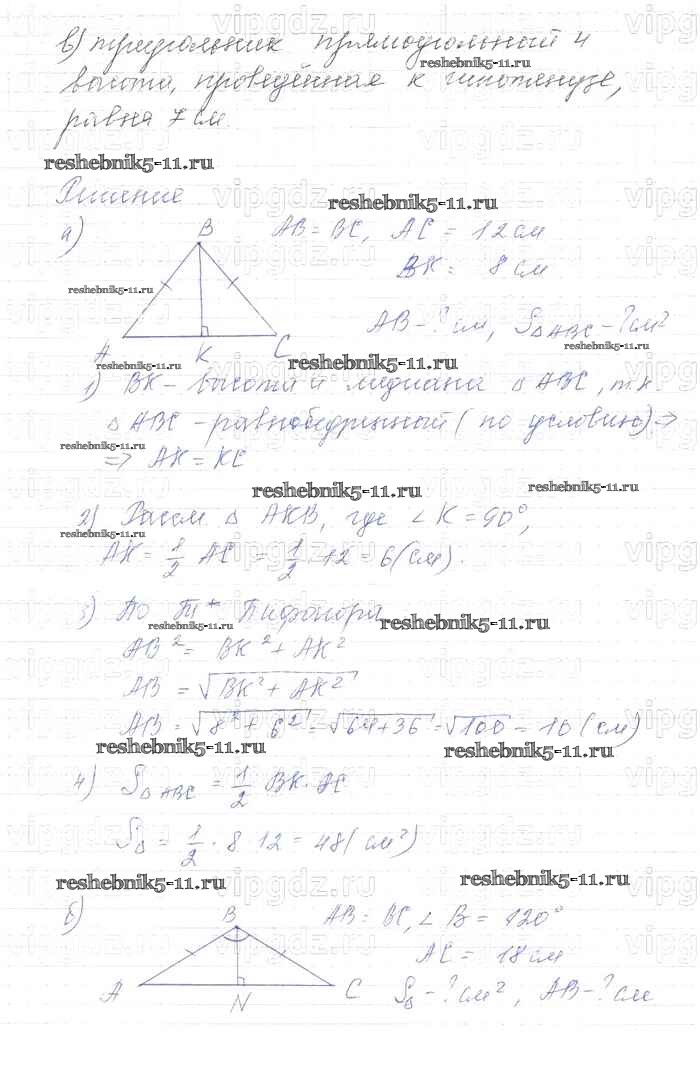 в) треугольник прямоугольный и
высота, проведённая к гипотенузе,
равна 7 см.
reshebnik5-11.ru
reshebnik5-11.ru
Решение
reshebnik5-11.ru
а)
B
AB = BC, AC = 12 см
BK = 8 см
reshebnik5-11.ru
AB - ? см, S△ABC - ? см²
reshebnik5-11.ru
A K C
reshebnik5-11.ru
reshebnik5-11.ru
1) BK - высота и медиана △ ABC, т.к.
△ ABC - равнобедренный (по условию) =>
reshebnik5-11.ru
=> AK = KC
reshebnik5-11.ru
reshebnik5-11.ru
2) Рассм. △ AKB, где ∠K = 90°,
reshebnik5-11.ru
AK = 1/2 AC = 1/2 · 12 = 6 (см).
3) По Пифагора
reshebnik5-11.ru
reshebnik5-11.ru
AB² = BK² + AK²
AB = √(BK² + AK²)
AB = √(8² + 6²) = √(64+36) = √100 = 10 (см)
reshebnik5-11.ru
reshebnik5-11.ru
4) S△ABC = 1/2 BK · AC
S△ = 1/2 · 8 12 = 48 (см²)
reshebnik5-11.ru
reshebnik5-11.ru
б)
B
AB = BC, ∠B = 120°
AC = 18 см
A N C
S△ - ? см², AB - ? см
vipgdz.ru